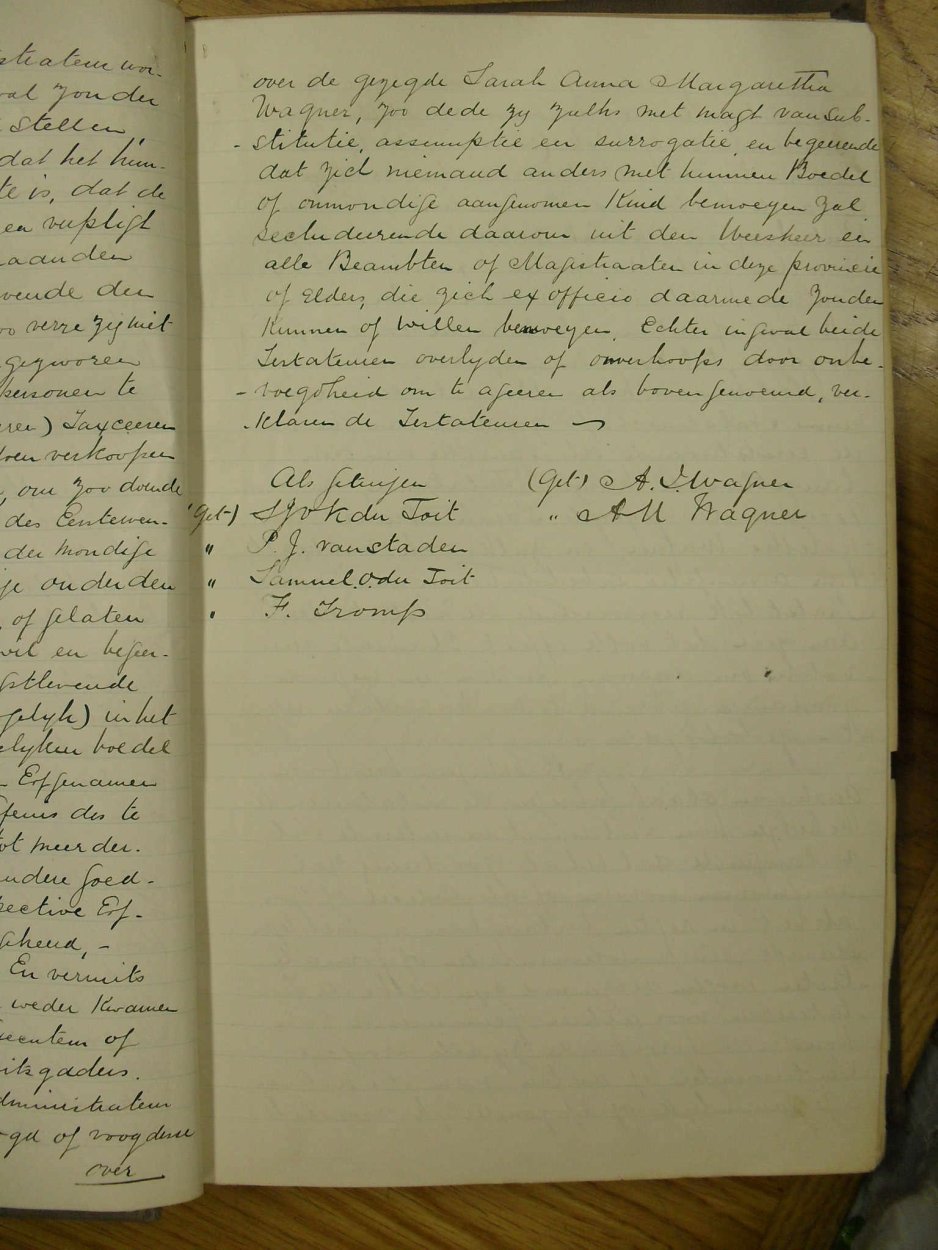 strateur wor-
val zonder
stellen,
dat het hun-
te is, dat de
en verpligt
aanden
vende den
oo verre zy niet
gezworen
personen te
eren) Taxeeren
doen verkoopen
, om zoo doende
des Eersterven-
der mondige
je onder den
, of gelaten
wil en begeer-
gstlevende
gelyk) in het
elyken boedel
Erfgenamen
fenis des te
tot meerder.
andere goed-
pective Erf-
gheend, -
En vermits
weder Kwamen
Executeur of
uitsgaders.
dministrateur
ogd of voogdesse
over
over de gezegde Sarah Anna Margaretha
Wagner, zoo dede zy zulks met magt van Sub-
- stitutie, assumptie en surrogatie, en begeerende
dat zich niemand anders met hunnen Boedel
of onmondige aangenomen Kind bemoeyen zal
secludeerende daarom uit den Weesheer en
alle Beambten of Magistraaten in deze provincie
of Elders, die zich ex officio daarmede zouden
Kunnen of willen bemoeyen. Echter ingeval beide
Testateuren overlyden of onverhoops door onbe-
- voegdheid om te ageeren als bovengenoemd, ver-
- klaren de Testateuren
Als getuigen (Get) A. J. Wagner
(Get) S J V K du Toit " A M Wagner
" P. J. van Staden
" Samuel. O. du Toit
" F. Tromp